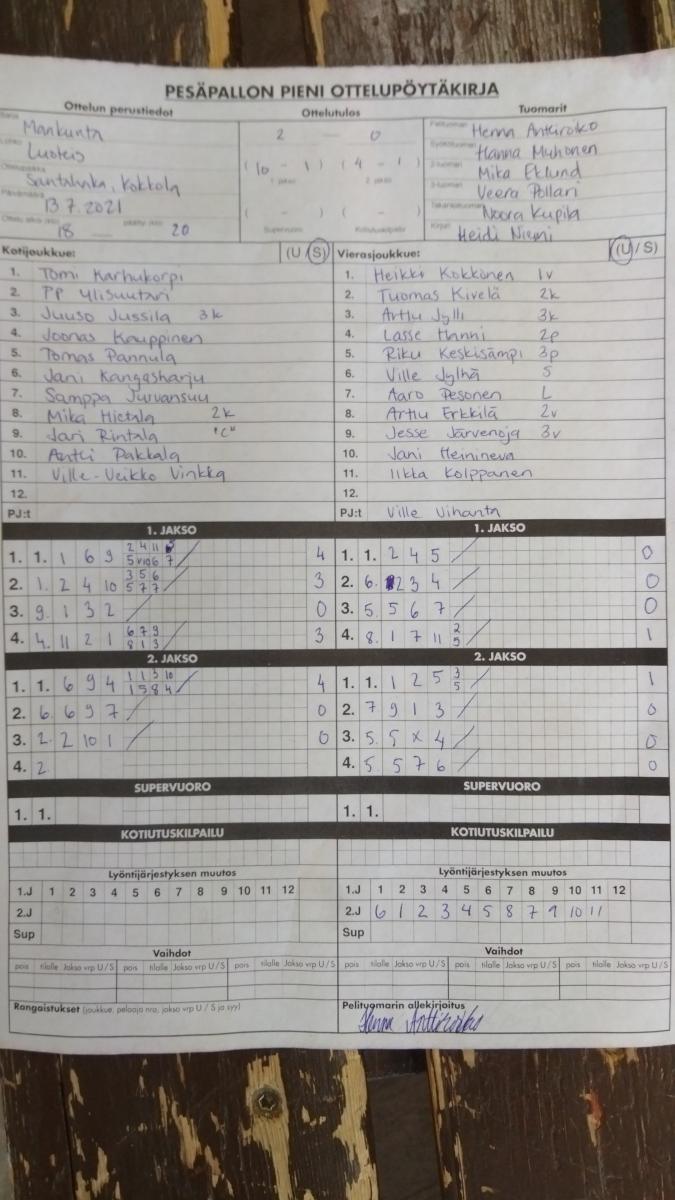 PESÄPALLON PIENI OTTELUPÖYTÄKIRJA
Ottelun perustiedot Ottelutulos Tuomarit
Mankunta
Luoteis
Santahaka, Kokkola
13.7.2021
18 20
2 — 0
(10 - 1) (4 - 1)
1. jakso 2. jakso
( - ) ( - )
Supervuoro Kotiutuskilpailu
Henna Anttiroiko
Hanna Muhonen
Mika Eklund
Veera Pollari
Noora Kupila
Heidi Niemi
Kotijoukkue: (U / S)
1. Tomi Karhukorpi
2. PP Ylisuutari
3. Juuso Jussila 3k
4. Joonas Kauppinen
5. Tomas Pannula
6. Jani Kangasharju
7. Samppa Jurvansuu
8. Mika Hietala 2k
9. Jari Rintala "C"
10. Antti Pakkala
11. Ville-Veikko Vinkka
12.
PJ:t
Vierasjoukkue: (U / S)
1. Heikki Kokkonen 1v
2. Tuomas Kivelä 2k
3. Arttu Jylli 3k
4. Lasse Hanni 2p
5. Riku Keskisämpi 3p
6. Ville Jylhä S
7. Aaro Pesonen L
8. Arttu Erkkilä 2v
9. Jesse Järvenoja 3v
10. Jani Heinineva
11. Iikka Kolppanen
12.
PJ:t Ville Vihanta
1. JAKSO
1. 1. 1 6 9 4
2. 1. 2 4 10 3 5 6 5 7 7 3
3. 9. 1 3 2 0
4. 4. 11 2 1 6 7 9 8 1 3 3
2. JAKSO
1. 1. 6 9 4 1 1 3 10 1 5 8 4 4
2. 6. 6 9 7 0
3. 2. 2 10 1 0
4. 2.
SUPERVUORO
1. 1.
KOTIUTUSKILPAILU
1. JAKSO
1. 1. 2 4 5 0
2. 6. 2 3 4 0
3. 5. 5 6 7 0
4. 8. 1 7 11 2 5 1
2. JAKSO
1. 1. 1 2 5 3 5 1
2. 7 9 1 3 0
3. 5. 5 x 4 0
4. 5. 5 7 6 0
SUPERVUORO
1. 1.
KOTIUTUSKILPAILU
Lyöntijärjestyksen muutos
1.J 1 2 3 4 5 6 7 8 9 10 11 12
2.J
Sup
Lyöntijärjestyksen muutos
1.J 1 2 3 4 5 6 7 8 9 10 11 12
2.J 6 1 2 3 4 5 8 7 9 10 11
Sup
Vaihdot
pois tilalle Jakso vrp U / S pois tilalle Jakso vrp U / S pois tilalle Jakso vrp U / S
Vaihdot
pois tilalle Jakso vrp U / S pois tilalle Jakso vrp U / S pois tilalle Jakso vrp U / S
Rangaistukset (joukkue, pelaaja nro, jakso vrp U / S ja syy)
Pelituomarin allekirjoitus
Henna Anttiroiko